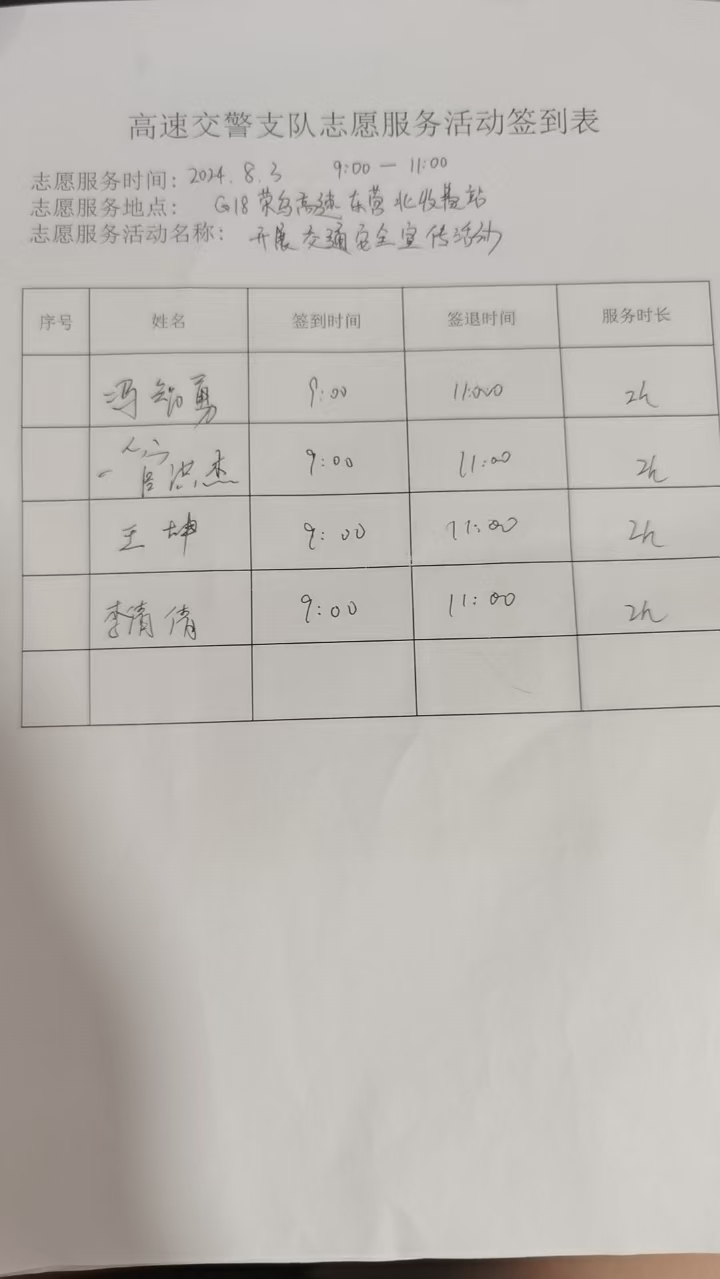 高速交警支队志愿服务活动签到表
志愿服务时间：2024.8.3 9:00 — 11:00
志愿服务地点： G18荣乌高速东营北收费站
志愿服务活动名称： 开展交通安全宣传活动
序号 姓名 签到时间 签退时间 服务时长
冯 勇 9:00 11:00 2h
杰 9:00 11:00 2h
王坤 9:00 11:00 2h
李倩倩 9:00 11:00 2h